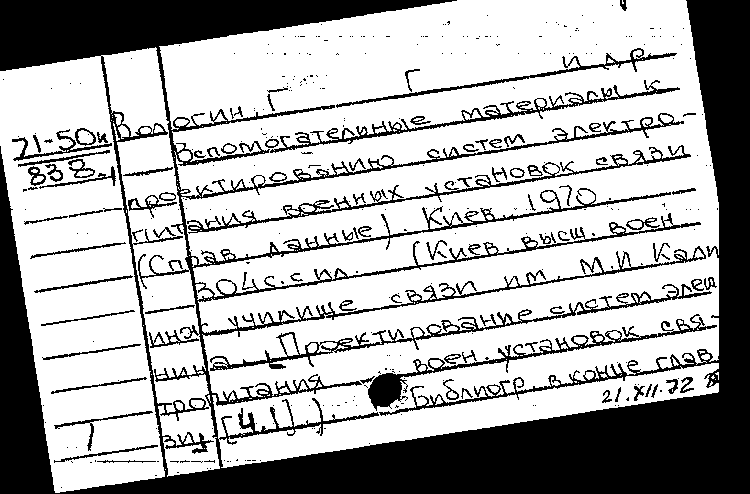 Вологин, Г Г и др.
71-50к
838-1
Вспомогательные материалы к
проектированию систем электро-
питания военных установок связи
(Справ. данные). Киев, 1970.
304с. с ил. (Киев. высш. воен
инж. училище связи им. М.И. Кали
нина. Проектирование систем элек
тропитания воен. установок свя-
зи [4.1].). Библиогр. в конце глав.
1
21.XII.72